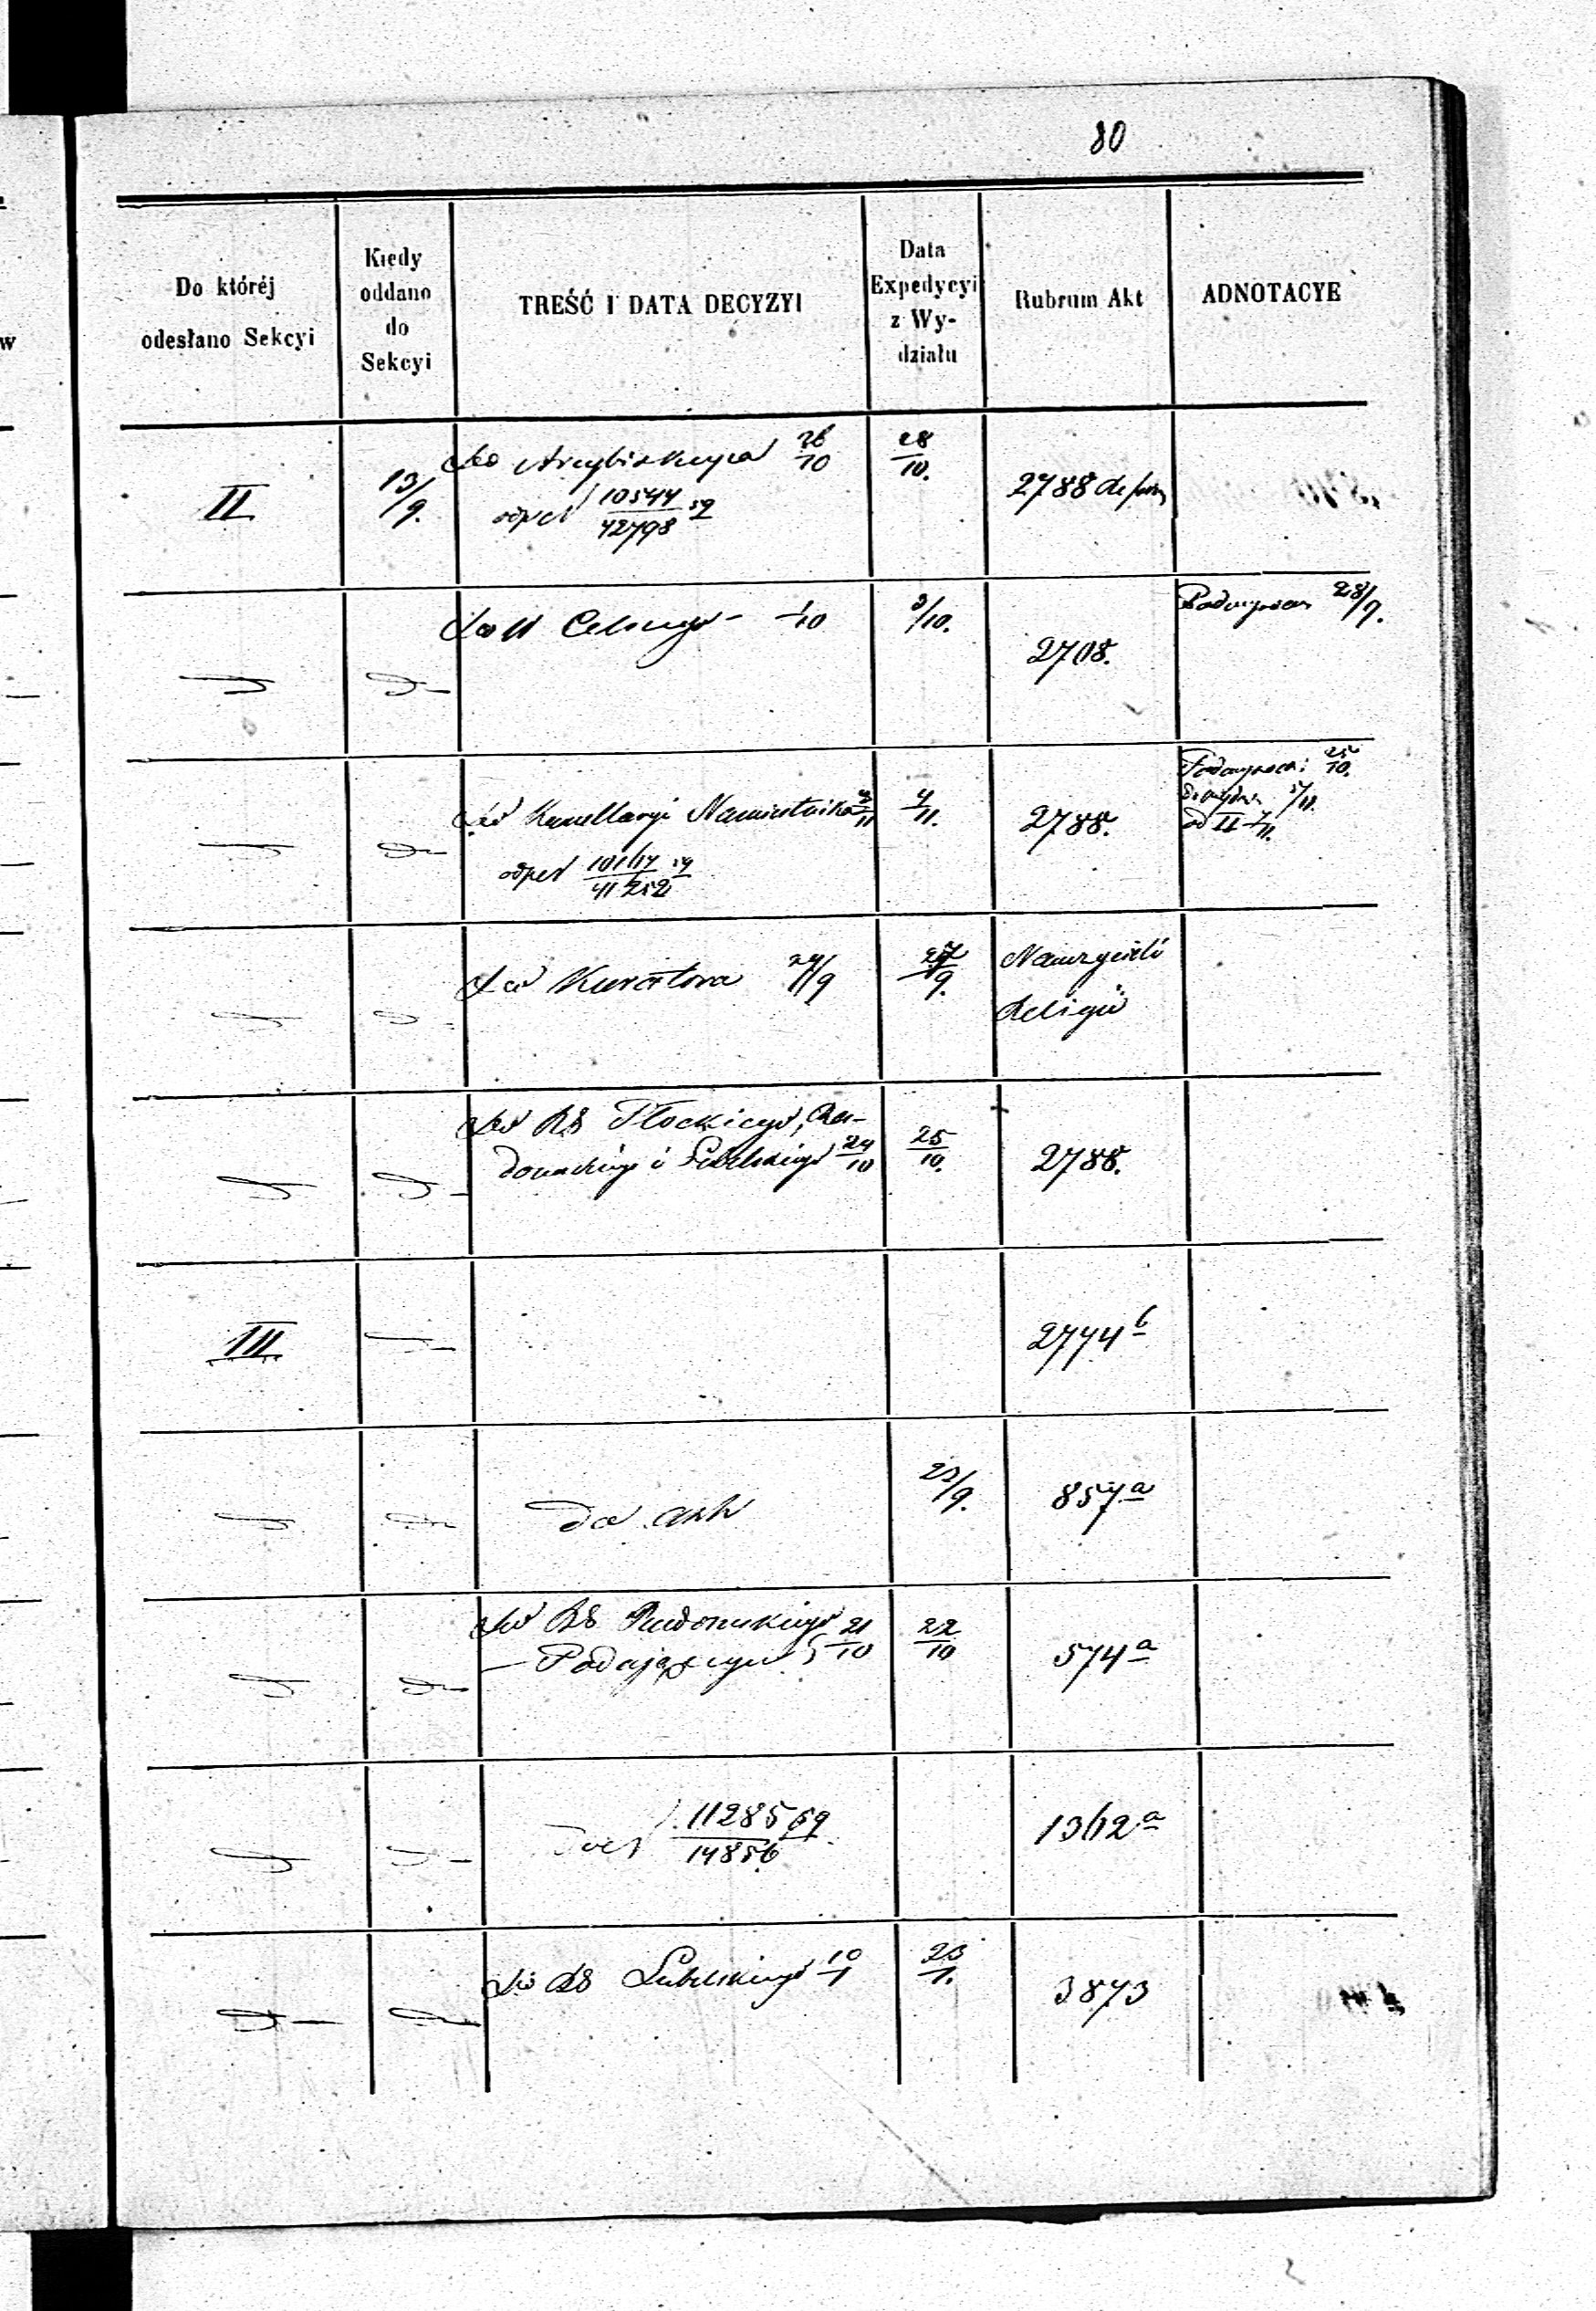 80
Do któréj
odesłano Sekcyi
Kiedy
oddano
do
Sekcyi
TREŚĆ I DATA DECYZYI
Data
Expedycyi
z Wy-
działu
Rubrum Akt
ADNOTACYE
II
13/9.
Do Arcybiskupa 26/10
odpct 10544/42798 59
28/10.
2788
1/10
3/10.
2708.
28/9.
Do Kancellaryi Namiestnika 3/11
odpct
4/11.
2788.
25/10.
od II 7/11.
Do Kuratora 24/9
27/9.
Nauczyciele
Religii
Do RG Płockiego, Ra-
domskiego i Lubelskiego 24/10
25/10.
2788.
III
2774 b
do akt
23/9.
857 a
Do RG Radomskiego
— Podającego 21/10
22/10
574 a
11285/14856 59
1362 a
Do RG Lubelskiego 10/1
23/1.
3873